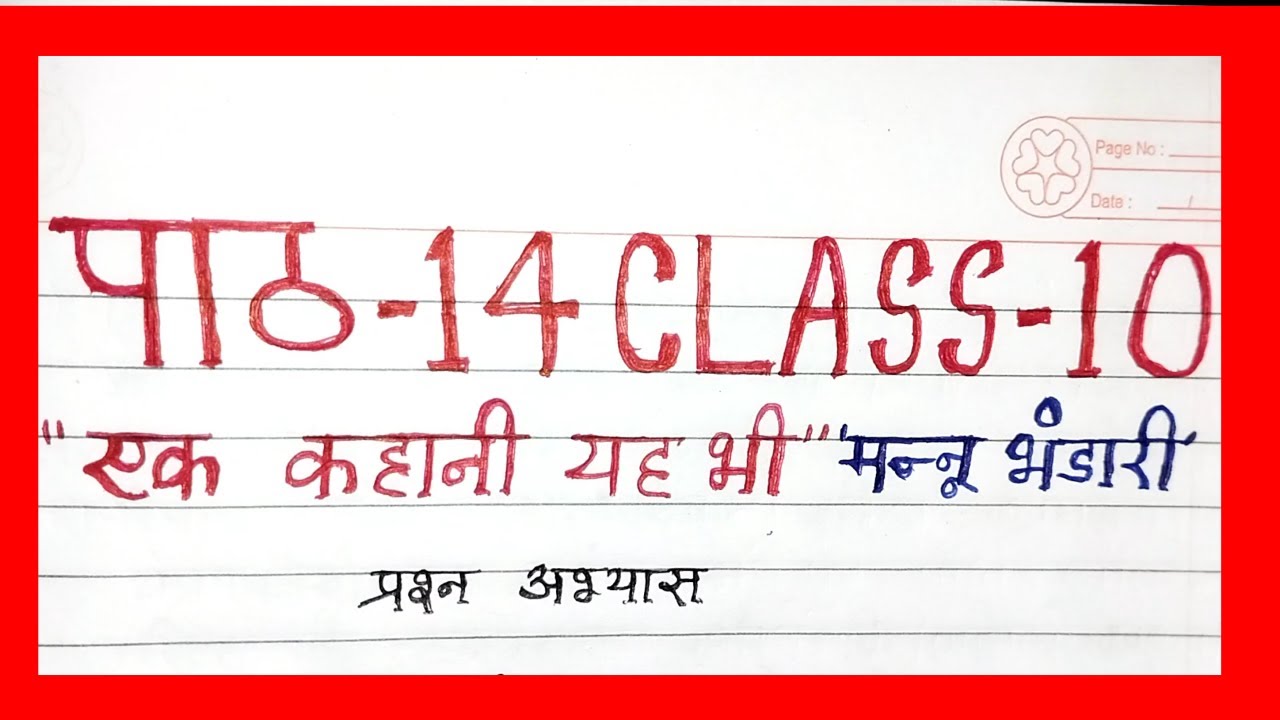 Page No :
Date : /
पाठ-14 CLASS-10
"एक कहानी यह भी" "मन्नू भंडारी"
प्रश्न अभ्यास